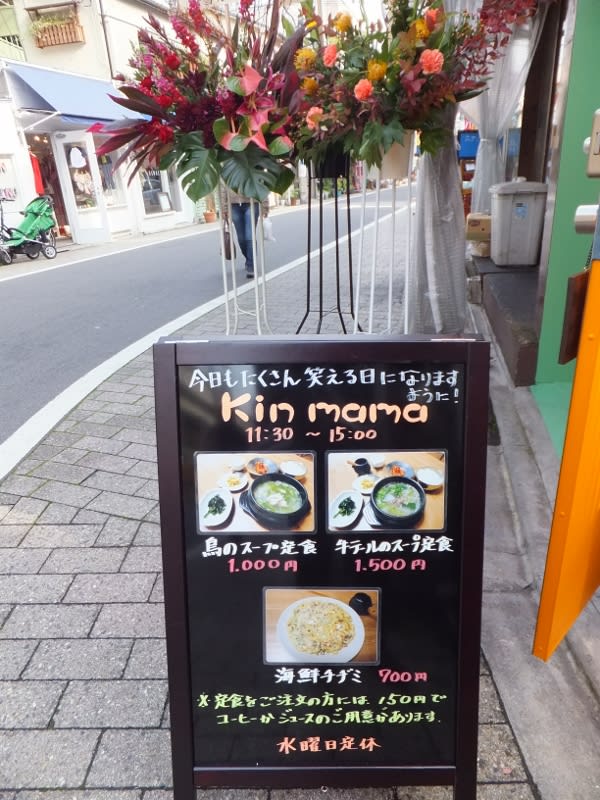 今日もたくさん笑える日になります
ように!
Kin mama
11:30 ～ 15:00
鳥のスープ定食
1.000円
牛テールのスープ定食
1.500円
海鮮チヂミ 700円
※定食をご注文の方には、150円で
コーヒーかジュースのご用意があります.
水曜日定休